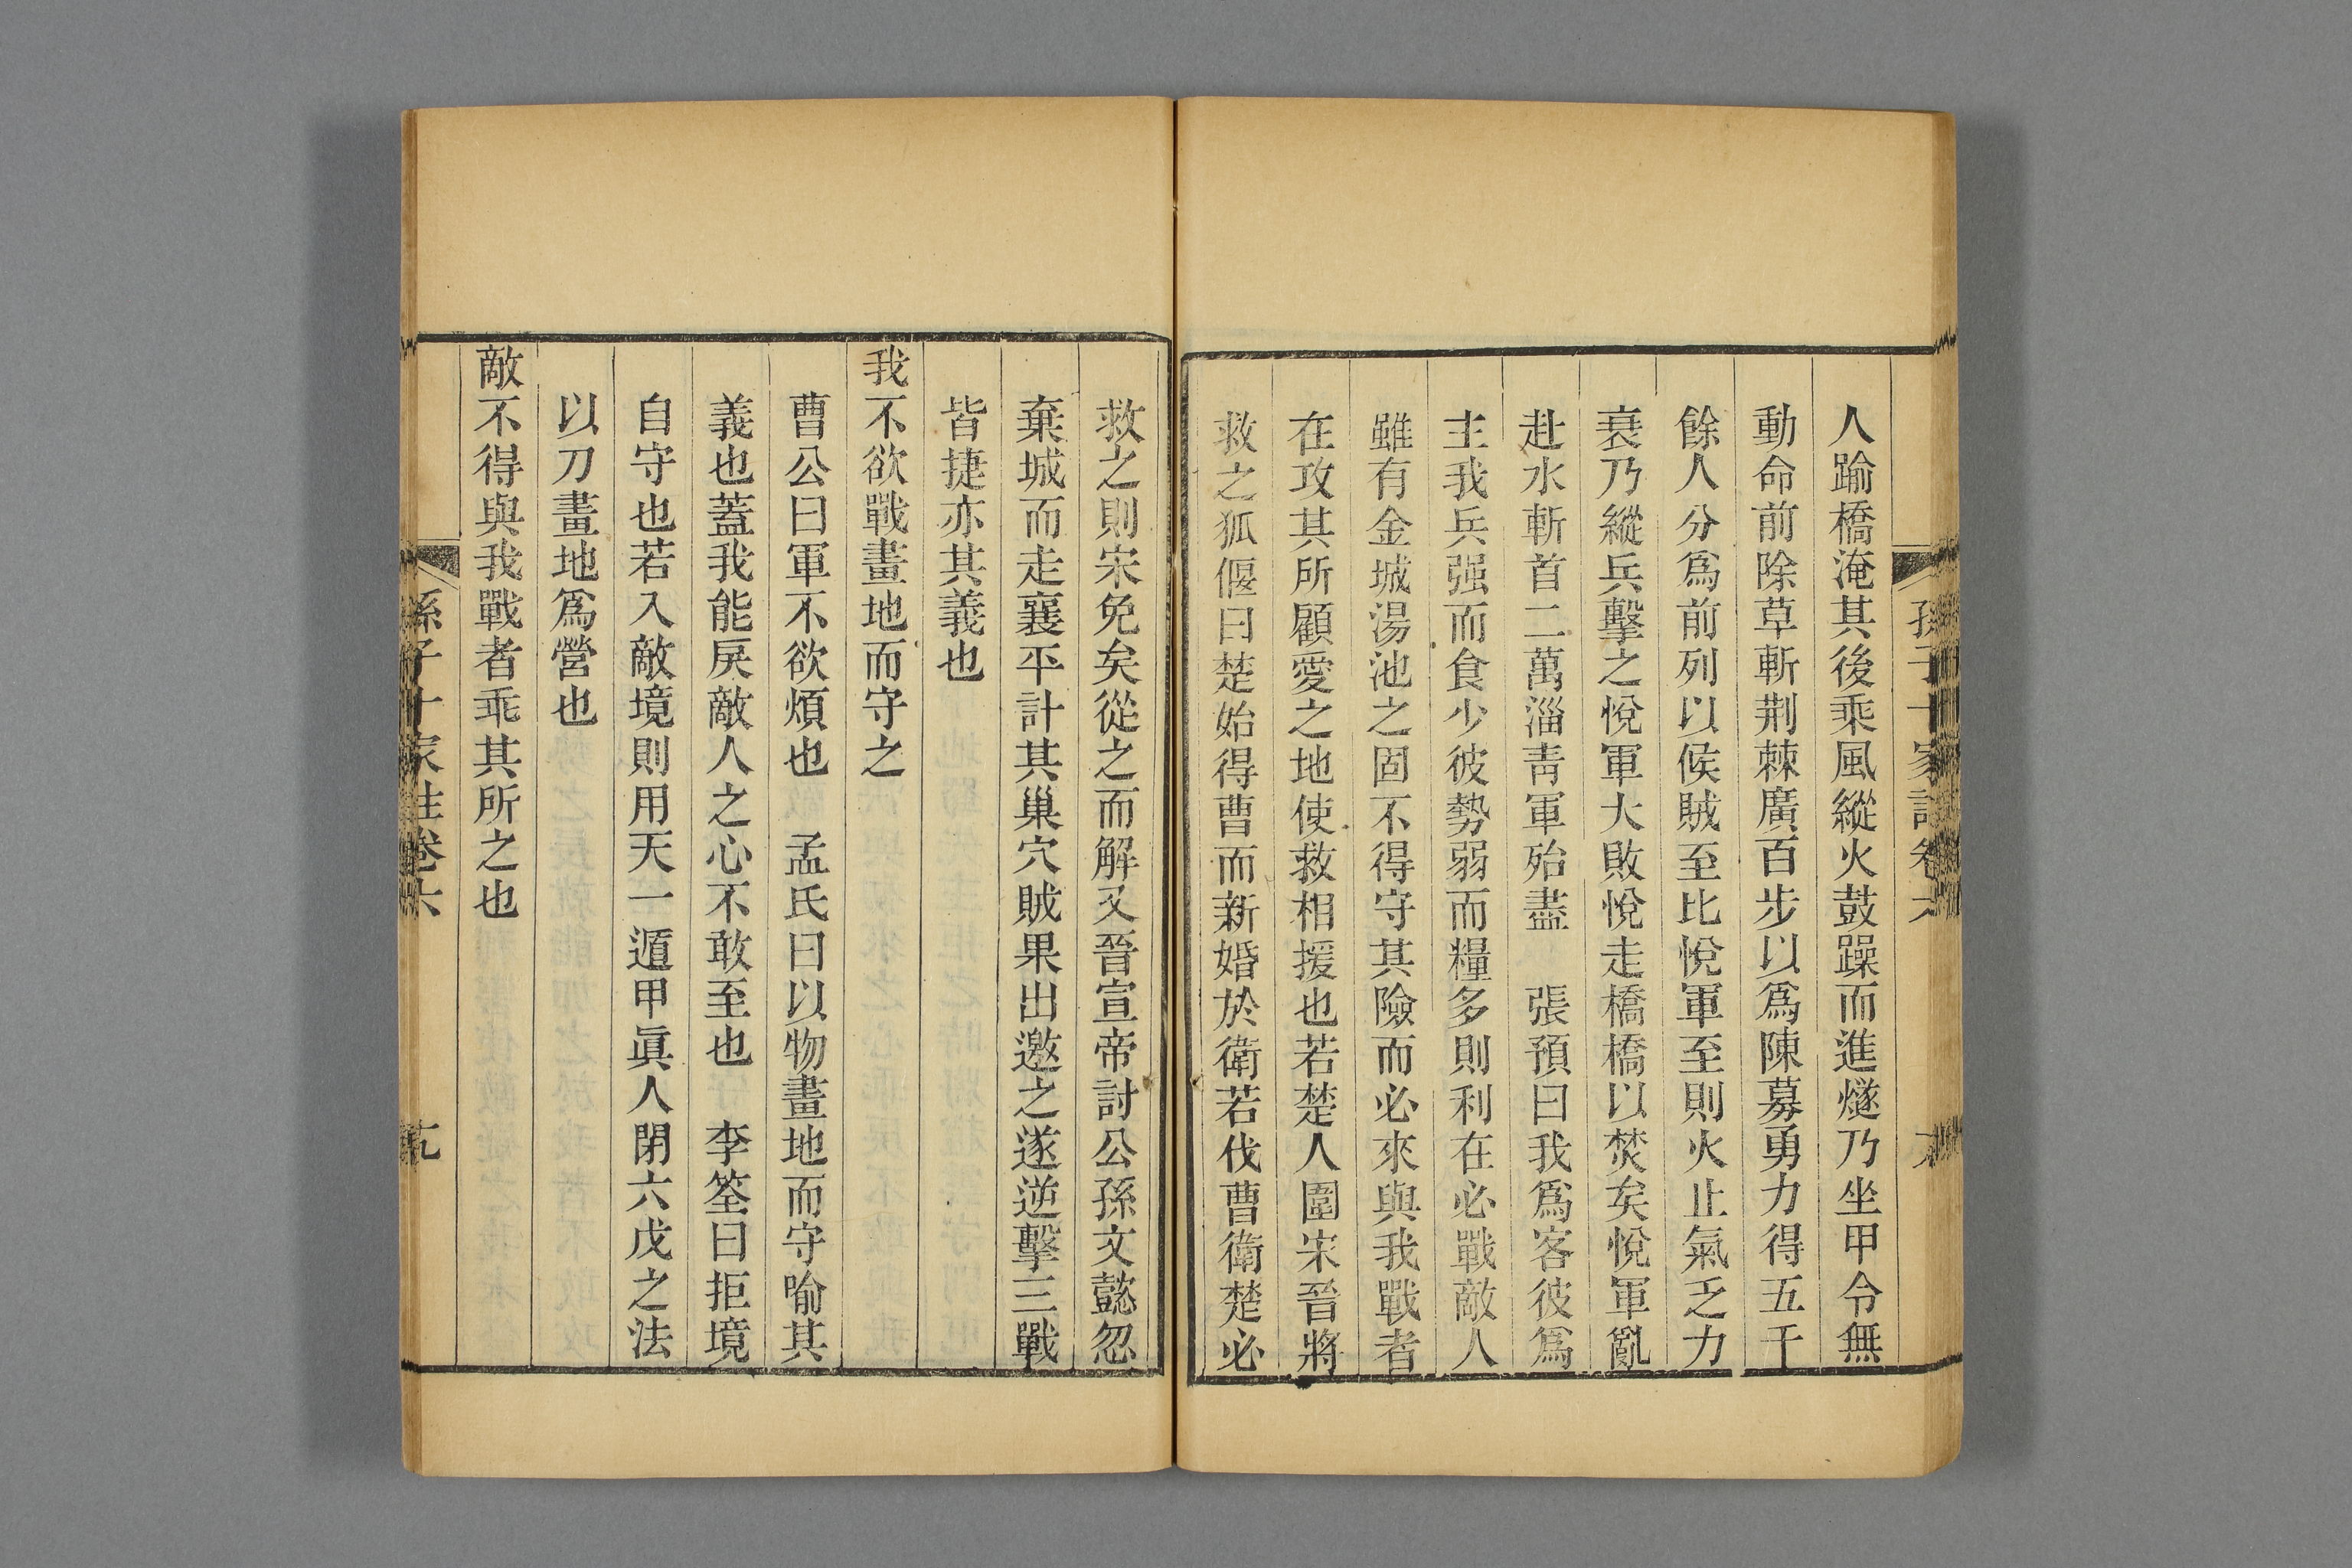 人踰橋淹其後乘風縱火鼓躁而進燧乃坐甲令無
動命前除草斬荆棘廣百步以爲陳募勇力得五千
餘人分爲前列以俟賊至比悅軍至則火止氣乏力
衰乃縱兵擊之悅軍大敗悅走橋橋以焚矣悅軍亂
赴水斬首二萬淄靑軍殆盡　張預曰我爲客彼爲
主我兵强而食少彼勢弱而糧多則利在必戰敵人
雖有金城湯池之固不得守其險而必來與我戰者
在攻其所顧愛之地使救相援也若楚人圍宋晉將
救之狐偃曰楚始得曹而新婚於衛若伐曹衛楚必
救之則宋免矣從之而解又晉宣帝討公孫文懿忽
棄城而走襄平計其巢穴賊果出邀之遂逆擊三戰
皆捷亦其義也
我不欲戰畫地而守之
曹公曰軍不欲煩也　孟氏曰以物畫地而守喻其
義也蓋我能戾敵人之心不敢至也　李筌曰拒境
自守也若入敵境則用天一遁甲眞人閉六戊之法
以刀畫地爲營也
敵不得與我戰者乖其所之也
孫子十家註卷六